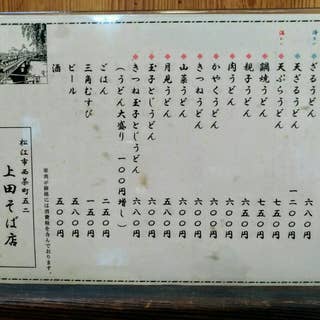 冷たい
ざるうどん 六八〇円
天ざるうどん 一二〇〇円
温かい
天ぷらうどん 七五〇円
鍋焼うどん 七五〇円
親子うどん
肉うどん
かやくうどん
きつねうどん
山菜うどん
月見うどん
玉子とじうどん 六八〇円
きつね玉子とじうどん 六八〇円
(うどん大盛り 一〇〇円増し)
ごはん 二五〇円
三角むすび 一五〇円
ビール 五五〇円
酒 五〇〇円
表示価格には消費税を含んでおります。
松江市西茶町五二
上田そば店